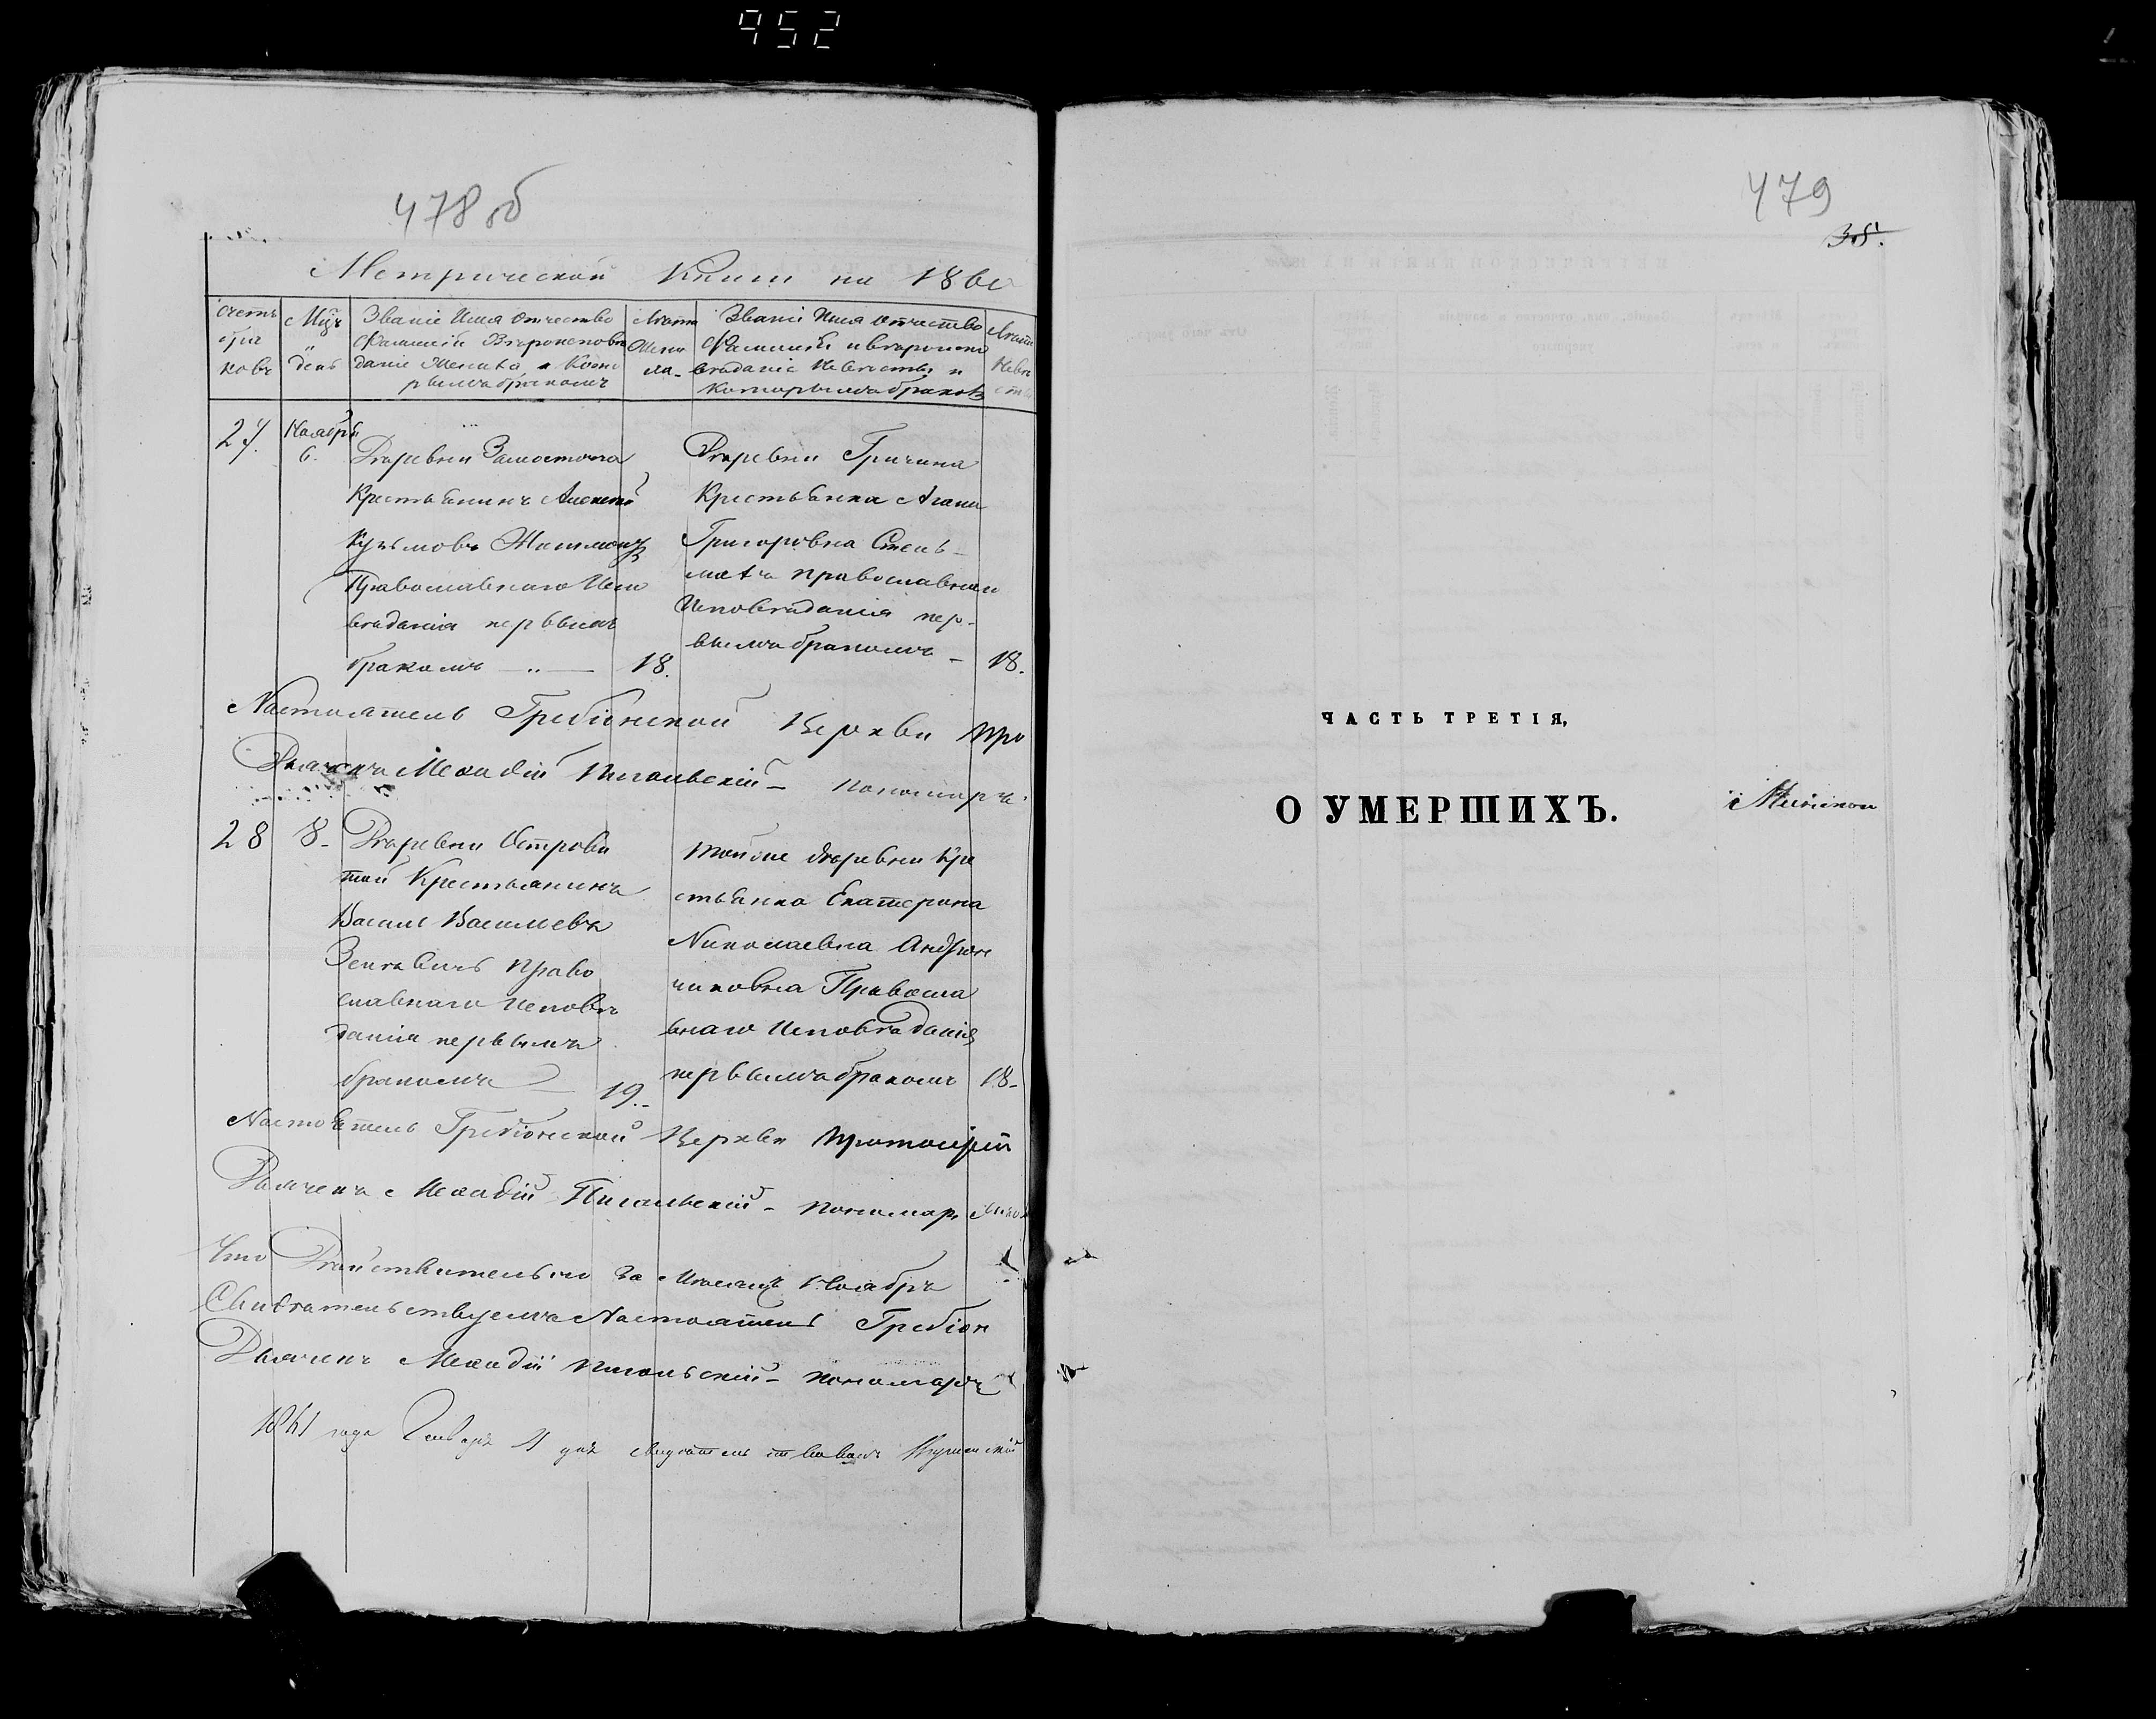 952
478 об
Метрической Книги на 1860
Счетъ браковъ
Мцъ день
Званіе Имя Отчество Фамилія Вѣроисповѣданіе Жениха и Которымъ бракомъ
Лѣта Жениха
Званіе Имя Отчество Фамилія и вѣроисповѣданіе Невѣсты и Которымъ бракомъ
Лѣта Невѣсты
27. Ноября 6.
Деревни Замосточа
Крестьянинъ Алексей
Кузьмовъ
Православнаго Испо
вѣданія первымъ
бракомъ — 18.
Деревни Гричина
Крестьянка Агапа
Григорьевна Стель
махъ Православнаго
Исповѣданія пер-
вымъ бракомъ - 18.
Настоятель Гребіонской Церкви Про
Дьячекъ Меѳодій Пигальвскій - Пономарь
28 8. Деревни Острови
той Крестьянинъ
Василь Васильевъ
православнаго исповѣ
данія первымъ
бракомъ — 19.
тойже деревни Кре
стьянка Екатерина
Николаевна Андрю
чиковна Правосла
внаго Исповѣданія
первымъ бракомъ 18-
Настоятель Гребіонской Церкви Протоіерей
Дьячекъ Меѳодій Пигальвскій - Пономарь
Что Дѣйствительно за Месяцъ Ноябрь
Свидѣтельствуемъ Настоятель Гребіон
Дьячекъ Меѳодій Пигальвскій - Пономарь
1861 года Генваря дня свидѣтельствовалъ
479
ЧАСТЬ ТРЕТІЯ,
О УМЕРШИХЪ.